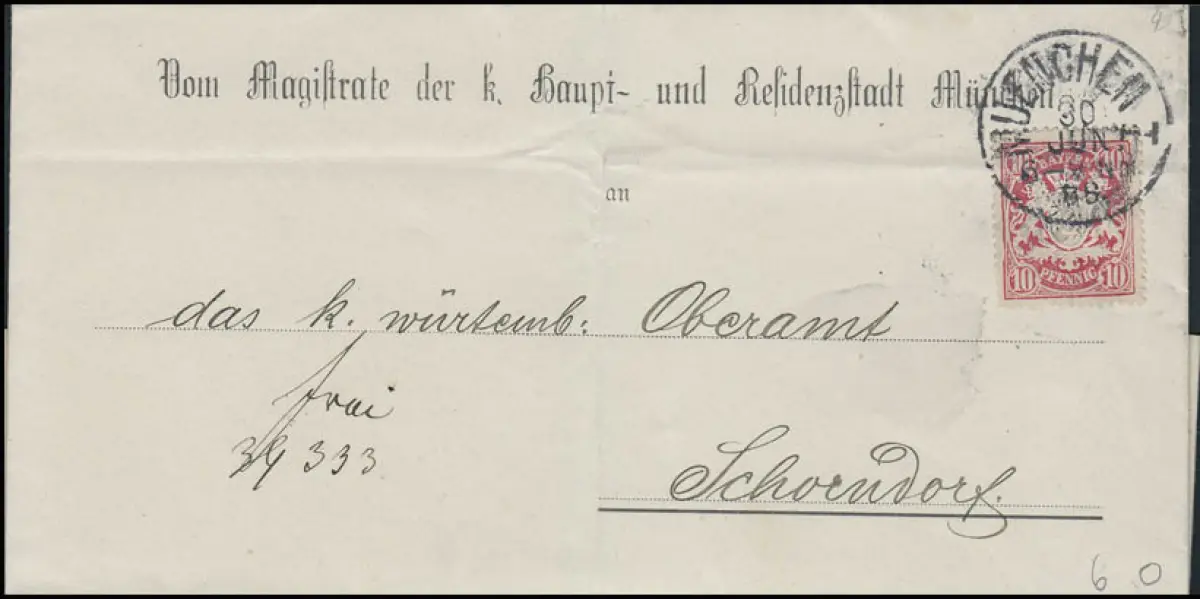 Vom Magistrate der k. Haupt- und Residenzstadt München
MUENCHEN I
30
JUN
88
10 BAYERN 10
10 PFENNIG 10
an
das k. würtemb: Oberamt
frei
39 333
Schorndorf.
6 0